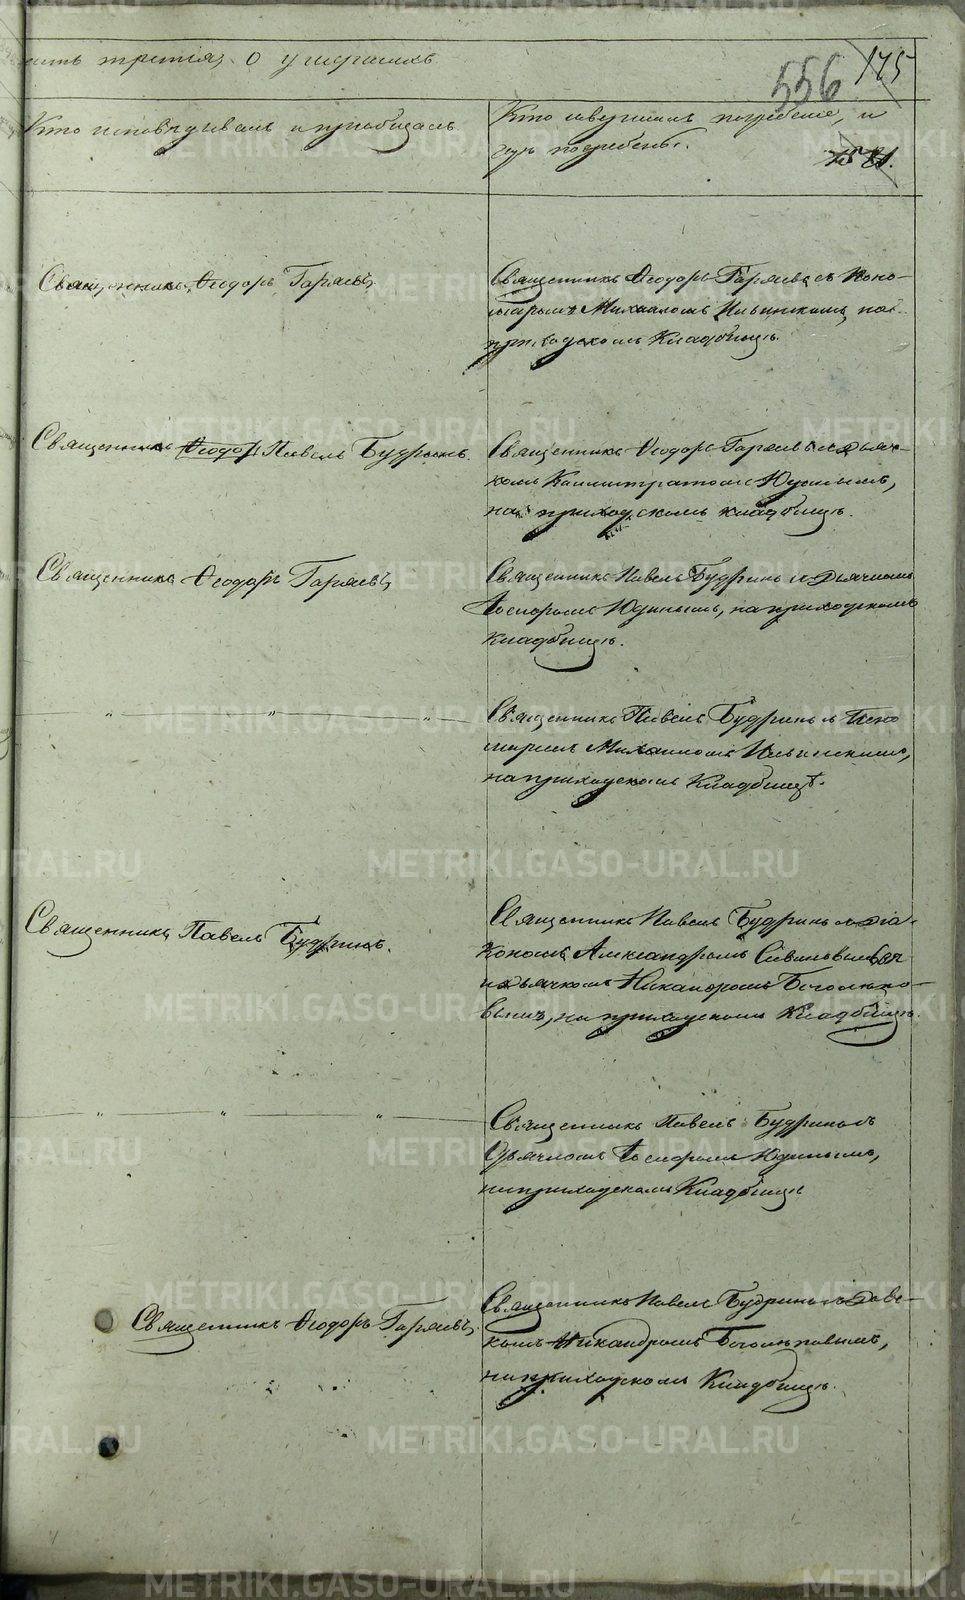 асть третія, о умершихъ
556
175
Кто исповѣдывалъ и пріобщалъ.
Кто совершалъ погребеніе, и
гдѣ погребены.
81.
Священникъ Ѳеодоръ Гаряевъ.
Священникъ Ѳеодоръ Гаряевъ съ Поно-
маремъ Михаиломъ Ильинскимъ, на
приходскомъ Кладбищѣ.
Священникъ Ѳеодоръ Павелъ Будринъ.
Священникъ Ѳеодоръ Гаряевъ съ дьяч-
комъ Каллистратомъ
на приходскомъ кладбищѣ.
Священникъ Ѳеодоръ Гаряевъ
Священникъ Павелъ Будринъ съ дьячкомъ
Юдинымъ, на приходскомъ
Кладбищѣ.
" " "
Священникъ Павелъ Будринъ съ Поно
маремъ Михаиломъ Ильинскимъ,
на приходскомъ Кладбищѣ.
Священникъ Павелъ Будринъ.
Священникъ Павелъ Будринъ съ діа-
кономъ Александромъ
и дьячкомъ Никандромъ Боголѣпо-
вымъ, на приходскомъ Кладбищѣ.
" " "
Священникъ Павелъ Будринъ съ
дьячкомъ Юдинымъ,
на приходскомъ Кладбищѣ
Священникъ Ѳеодоръ Гаряевъ
Священникъ Павелъ Будринъ съ
комъ Никандромъ Боголѣповымъ,
на приходскомъ Кладбищѣ.
METRIKI.GASO-URAL.RU